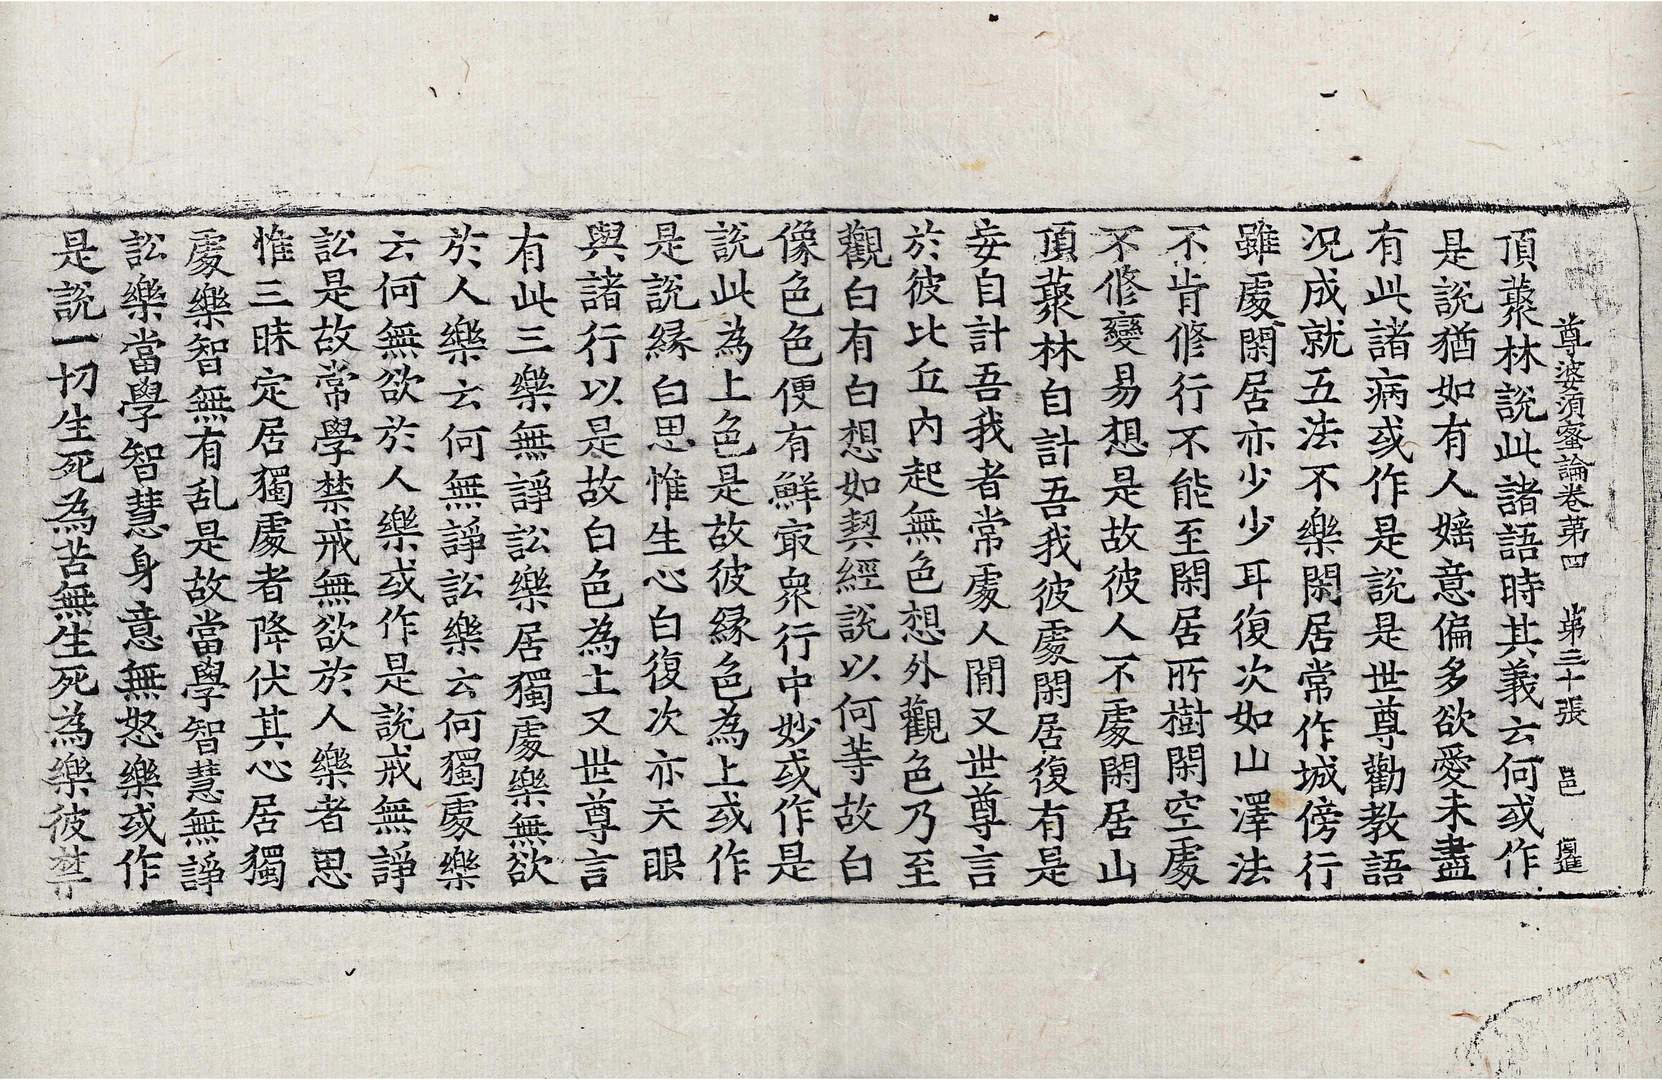 尊婆須蜜論卷第四　第三十張　邑
頂藂林說此諸語時其義云何或作
是說猶如有人婬意偏多欲愛未盡
有此諸病或作是說是世尊勸教語
況成就五法不樂閑居常作城傍行
雖處閑居亦少少耳復次如山澤法
不肯修行不能至閑居所樹閑空處
不修變易想是故彼人不處閑居山
頂藂林自計吾我彼處閑居復有是
妄自計吾我者常處人間又世尊言
於彼比丘內起無色想外觀色乃至
觀白有白想如契經說以何等故白
像色色便有鮮㝡衆行中妙或作是
說此為上色是故彼緣色為上或作
是說緣白思惟生心白復次亦天眼
與諸行以是故白色為上又世尊言
有此三樂無諍訟樂居獨處樂無欲
於人樂云何無諍訟樂云何獨處樂
云何無欲於人樂或作是說戒無諍
訟是故常學禁戒無欲於人樂者思
惟三昧定居獨處者降伏其心居獨
處樂智無有乱是故當學智慧無諍
訟樂當學智慧身意無怒樂或作
是說一切生死為苦無生死為樂彼禁